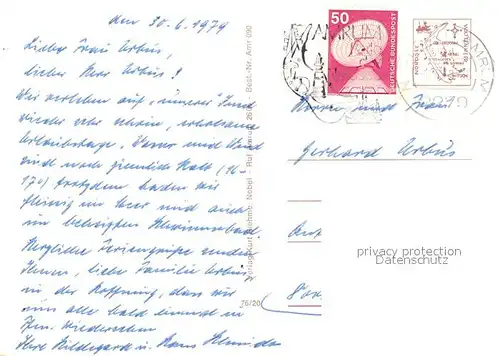 den 30.6.1979
Lieber Frau Urbus,
lieber Herr Urbus!
Wir verleben auf "unserer" Insel
wieder sehr schöne, erholsame
Urlaubstage. Wasser und Wind
sind noch ziemlich kalt (16-
17°) trotzdem baden wir
fleissig im Meer und auch
im beheizten Schwimmbad
Herzliche Feriengrüße senden
Ihnen, liebe Familie Urbus,
in der Hoffnung, dass wir
uns alle bald einmal in
Wiedersehen
Ihre Hildegard u. Hans
Verlag Kurt Nebel
Best.-Nr. Amr 090
76/20
50
DEUTSCHE BUNDESPOST
AMRUM
NORDSEE
Herrn und Frau
Gerhard Urbus
privacy protection
Datenschutz